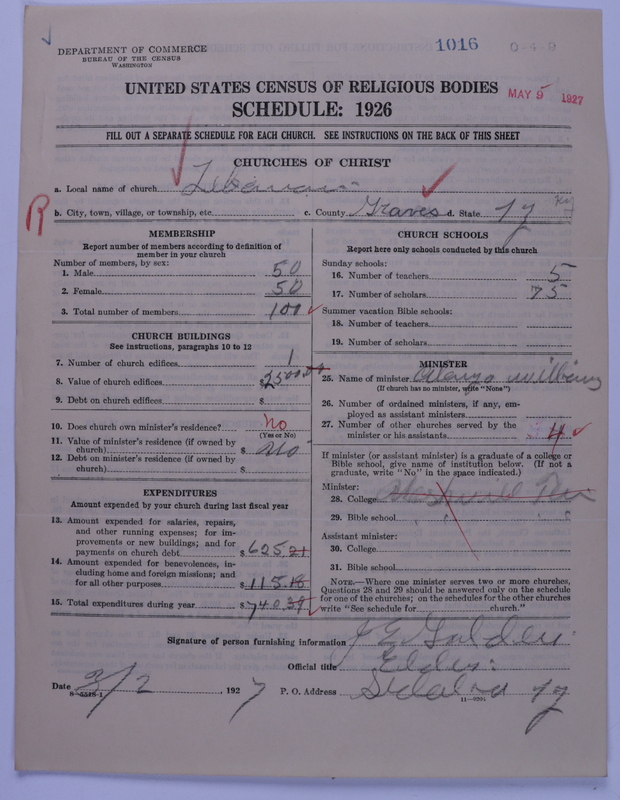 1016
0-4-9
DEPARTMENT OF COMMERCE
BUREAU OF THE CENSUS
WASHINGTON
UNITED STATES CENSUS OF RELIGIOUS BODIES
MAY 5 1927
SCHEDULE: 1926
FILL OUT A SEPARATE SCHEDULE FOR EACH CHURCH. SEE INSTRUCTIONS ON THE BACK OF THIS SHEET
CHURCHES OF CHRIST
a. Local name of church
R
b. City, town, village, or township, etc. c. County Graves d. State Ky
MEMBERSHIP
Report number of members according to definition of
member in your church
Number of members, by sex:
1. Male 50
2. Female 50
3. Total number of members 100
CHURCH BUILDINGS
See instructions, paragraphs 10 to 12
7. Number of church edifices 1
8. Value of church edifices $2500.00
9. Debt on church edifices $
10. Does church own minister's residence? No
(Yes or No)
11. Value of minister's residence (if owned by
church) $ no
12. Debt on minister's residence (if owned by
church) $
EXPENDITURES
Amount expended by your church during last fiscal year
13. Amount expended for salaries, repairs,
and other running expenses; for im-
provements or new buildings; and for
payments on church debt $625.21
14. Amount expended for benevolences, in-
cluding home and foreign missions; and
for all other purposes $115.18
15. Total expenditures during year $740.39
CHURCH SCHOOLS
Report here only schools conducted by this church
Sunday schools:
16. Number of teachers 5
17. Number of scholars 75
Summer vacation Bible schools:
18. Number of teachers
19. Number of scholars
MINISTER
25. Name of minister Alonzo
(If church has no minister, write "None")
26. Number of ordained ministers, if any, em-
ployed as assistant ministers
27. Number of other churches served by the
minister or his assistants 4
If minister (or assistant minister) is a graduate of a college or
Bible school, give name of institution below. (If not a
graduate, write "No" in the space indicated.)
Minister:
28. College
29. Bible school " "
Assistant minister:
30. College
31. Bible school
NOTE.—Where one minister serves two or more churches,
Questions 28 and 29 should be answered only on the schedule
for one of the churches; on the schedules for the other churches
write "See schedule for church."
Signature of person furnishing information J E Golden
Official title Elder
Date 3/2, 1927 P. O. Address Sedalia Ky
8-5518-1 11-9394